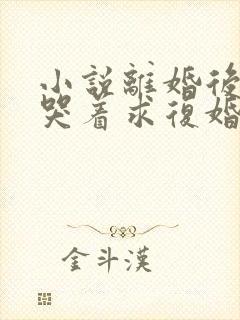 小説離婚後
哭着求復婚
金斗漢